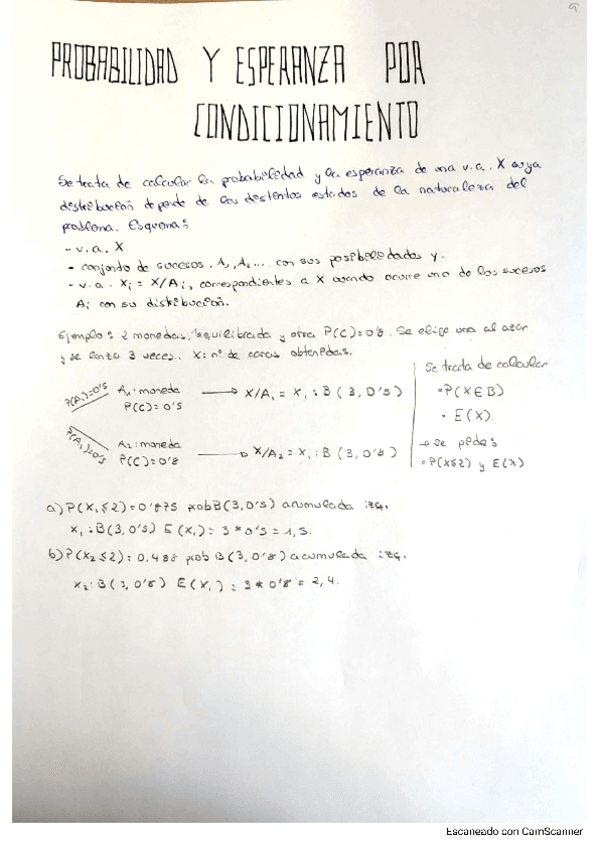 9
PROBABILIDAD Y ESPERANZA POR
CONDICIONAMIENTO
Se trata de calcular la probabilidad y la esperanza de una v.a. X cuya
distribución depende de los distintos estados de la naturaleza del
problema. Esquema:
- v.a. X
- conjunto de sucesos. A₁, A₂... con sus posibilidades y.
- v.a. Xi = X/Ai, correspondientes a X cuando ocurre uno de los sucesos
Ai con su distribución.
Ejemplo: 2 monedas, 1 equilibrada y otra P(C)=0'8. Se elige una al azar
y se lanza 3 veces. X: nº de caras obtenidas.
P(A₁)=0'5 A₁: moneda
P(C)=0'5
→ X/A₁ = X₁ : B (3, 0'5)
P(A₂)=0'5 A₂: moneda
P(C)=0'8
→ X/A₂ = X₁ : B (3, 0'8)
Se trata de calcular
• P(X∈B)
• E(X).
→ se pide:
• P(X≤2) y E(X)
a) P(X₁≤2)=0'875 prob B(3,0's) acumulada izq.
X₁: B(3,0's) E(X₁) = 3 * 0's = 1,5.
b) P(X₂≤2) = 0,488 prob B(3,0'8) acumulada izq.
X₂: B(3,0'8) E(X₁) = 3 * 0'8 = 2,4.
Escaneado con CamScanner